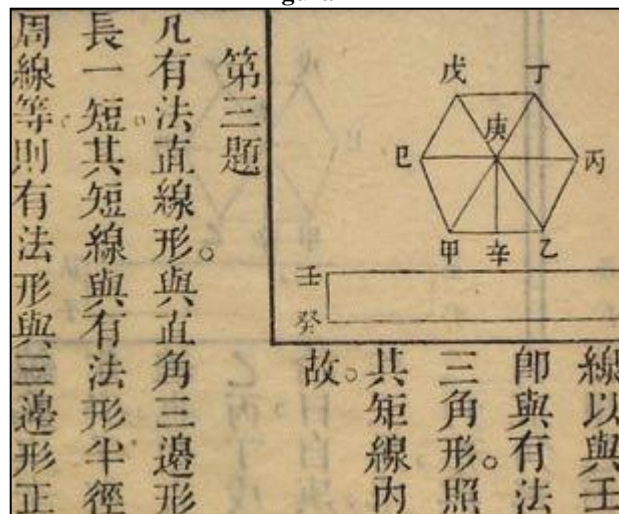 戊 丁
庚
巳 丙
甲 辛 乙
壬
癸
線以與壬
卽與有法
三角形。照
其矩線內
故。
第三題
凡有法直線形。與直角三邊形
長一短其短線與有法形半徑
周線等則有法形與三邊形正